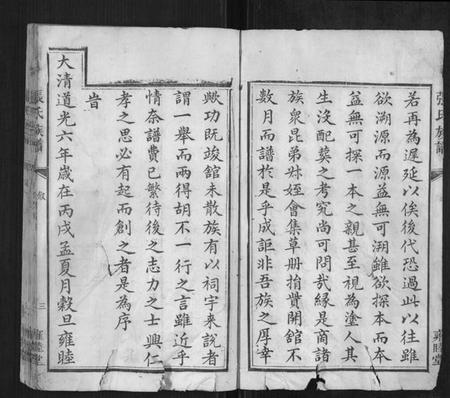 張氏族譜
若再為遲延以俟後代恐過此以往雖
欲溯源而源益無可溯雖欲探本而本
益無可探一本之親甚至視為塗人其
生沒配葬之考究尚可問哉緣是商諸
族衆昆弟叔姪會集草册捐貲開館不
數月而譜於是乎成詎非吾族之厚幸
雍睦堂
歟功既竣館未散族有以祠宇來說者
謂一舉而兩得胡不一行之言雖近乎
情奈譜費已繁待後之志力之士興仁
孝之思必有起而創之者是為序
旹
大清道光六年歲在丙戌孟夏月穀旦雍睦
張氏族譜
敘
三
雍睦堂